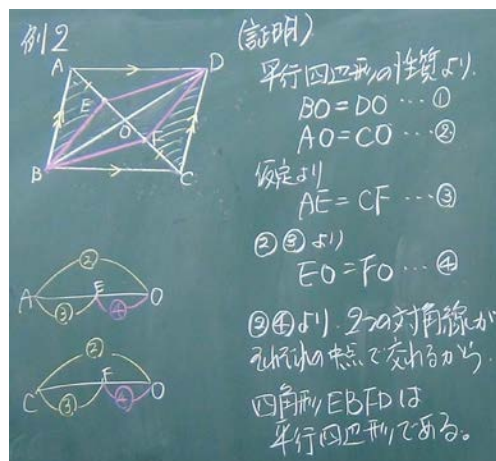 例2
A
D
E
O
F
B
C
②
A
E
O
③
④
②
C
F
O
③
④
(証明)
平行四辺形の性質より.
BO=DO…①
AO=CO…②
仮定より
AE=CF…③
②③より
EO=FO…④
②④より.2つの対角線が
それぞれの中点で交わるから.
四角形EBFDは
平行四辺形である。